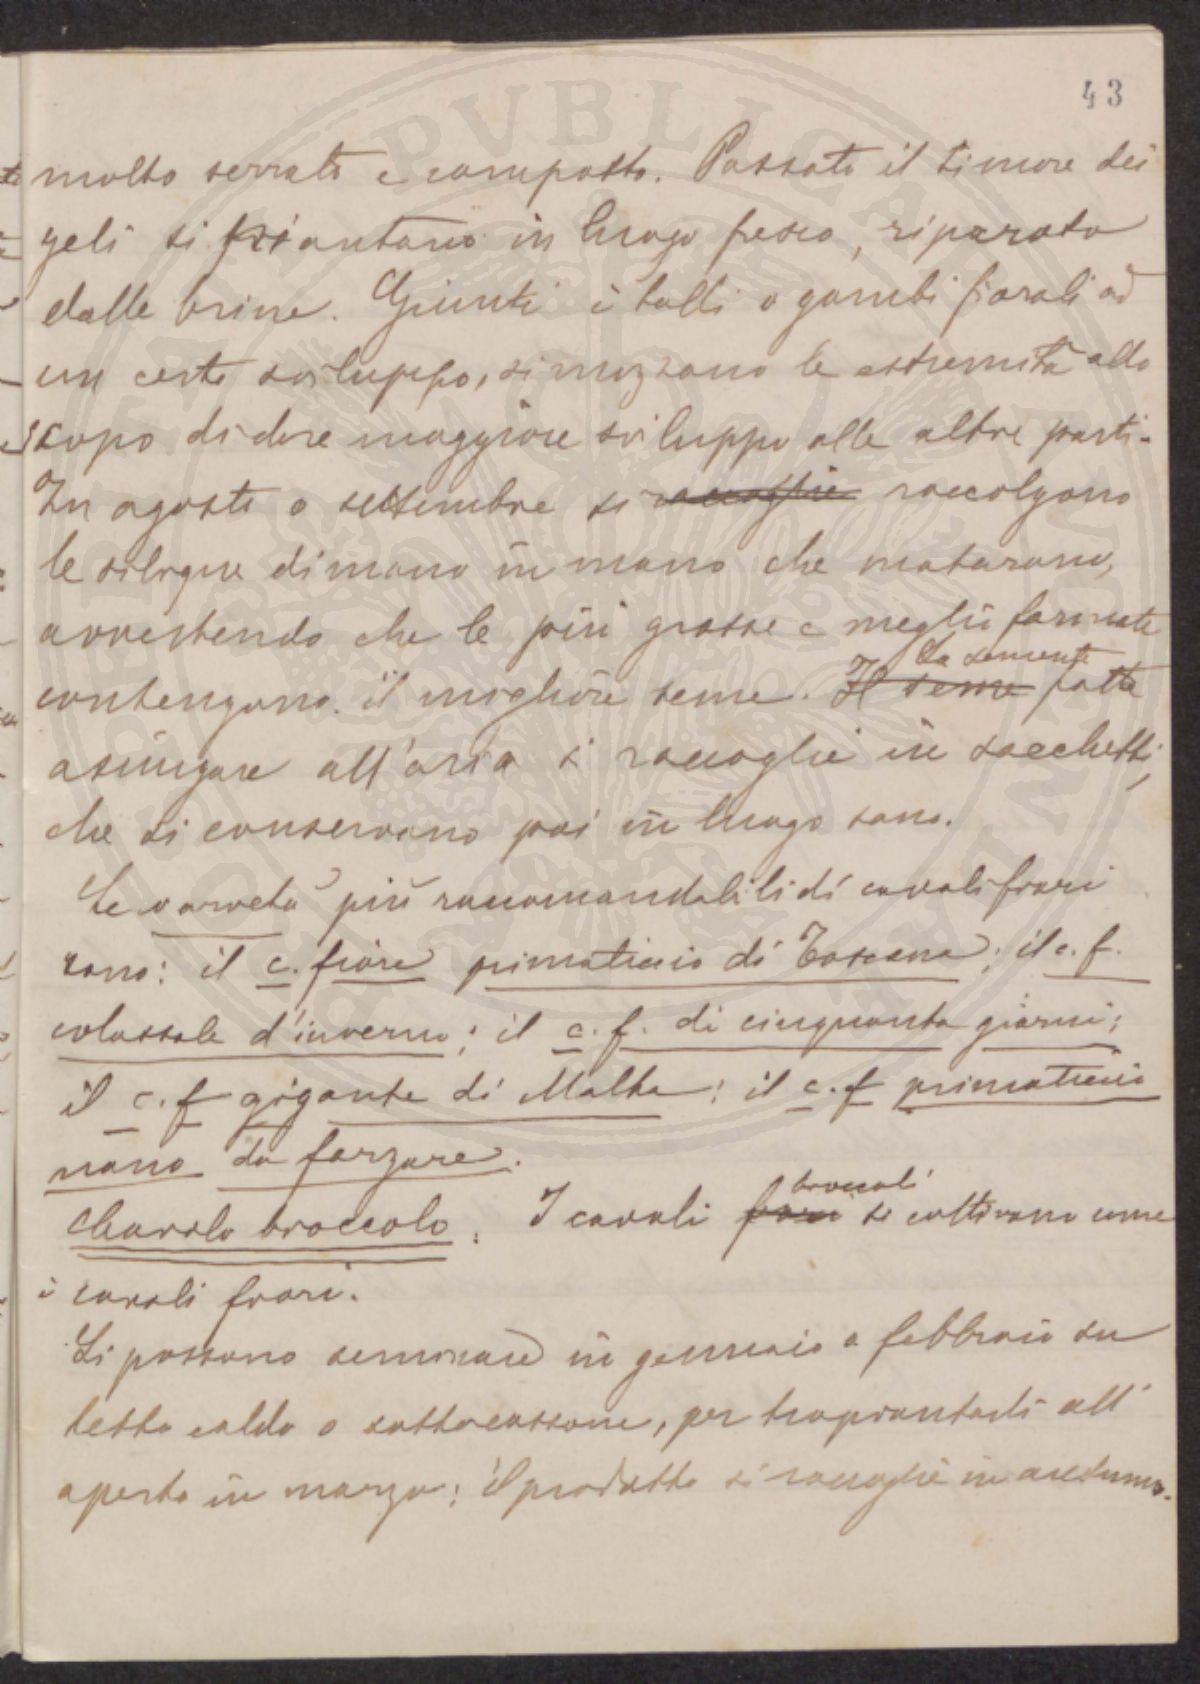 43
molto serrato e composto. Passato il timore dei
geli si piantano in luogo fresco, riparato
dalle brine. Giunti i talli o gambi fiorali ad
un certo sviluppo, si mozzano le estremità allo
scopo di dare maggiore sviluppo alle altre parti.
In agosto o settembre si raccoglie raccolgono
le silique di mano in mano che maturano,
avvertendo che le più grosse e meglio formate
contengono il migliore seme. Il seme La semente fatta
asciugare all'aria si raccoglie in sacchetti,
che si conservano poi in luogo sano.
Le varietà più raccomandabili di cavolifiori
sono: il c. fiore primaticcio di Toscana; il c. f.
colossale d'inverno; il c. f. di cinquanta giorni;
il c. f gigante di Malta; il c. f primaticcio
nano da forzare.
Chavolo broccolo. I cavoli fiori broccoli si coltivano come
i cavoli fiori.
Si possono seminare in gennaio o febbraio su
letto caldo o sottocassone, per trapiantarli all'
aperto in marzo; il prodotto si raccoglie in autunno.
PVBLICA